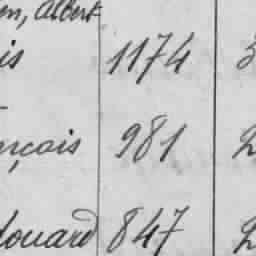 en, Albert
is 1174 3
nçois 981 2
douard 847 2